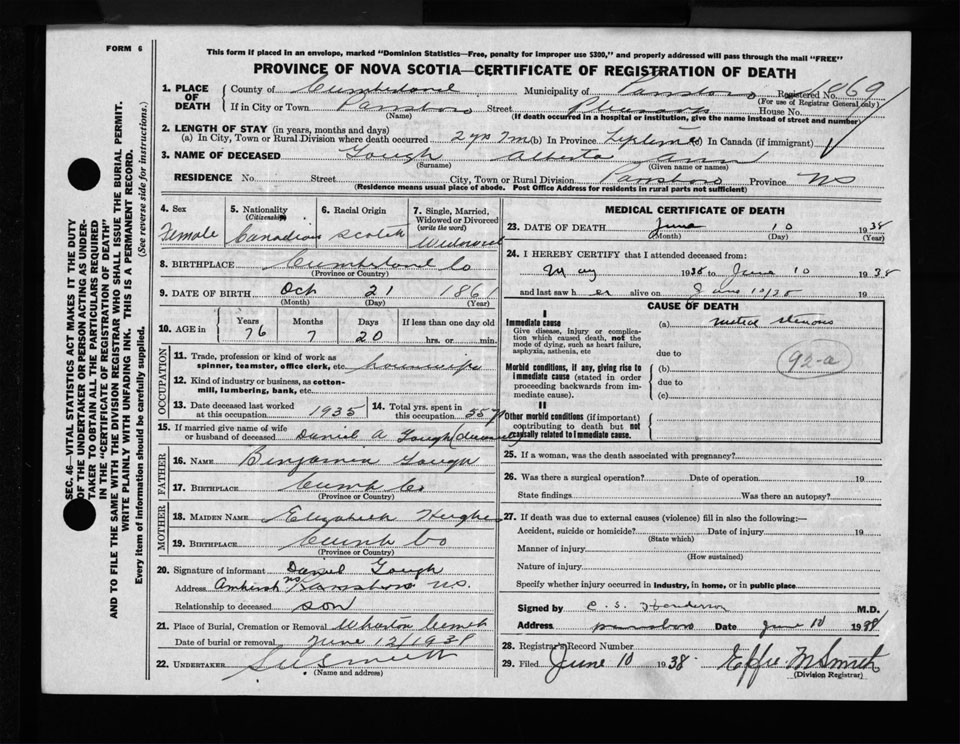 FORM 6
This form if placed in an envelope, marked "Dominion Statistics—Free, penalty for improper use $300," and properly addressed will pass through the mail "FREE"
PROVINCE OF NOVA SCOTIA—CERTIFICATE OF REGISTRATION OF DEATH
SEC. 46—VITAL STATISTICS ACT MAKES IT THE DUTY
OF THE UNDERTAKER OR PERSON ACTING AS UNDER-
TAKER TO OBTAIN ALL THE PARTICULARS REQUIRED
IN THE "CERTIFICATE OF REGISTRATION OF DEATH"
AND TO FILE THE SAME WITH THE DIVISION REGISTRAR WHO SHALL ISSUE THE BURIAL PERMIT.
WRITE PLAINLY WITH UNFADING INK. THIS IS A PERMANENT RECORD.
Every item of information should be carefully supplied. (See reverse side for instructions.)
1. PLACE OF DEATH
County of Cumberland Municipality of Parrsboro Registered No. 1869
(For use of Registrar General only)
If in City or Town Parrsboro Street House No.
(Name) (If death occurred in a hospital or institution, give the name instead of street and number)
2. LENGTH OF STAY (in years, months and days)
(a) In City, Town or Rural Division where death occurred 2 yrs 7 m (b) In Province Lifetime (c) In Canada (if immigrant)
3. NAME OF DECEASED Gough Alberta Ann
(Surname) (Given name or names)
RESIDENCE No. Street City, Town or Rural Division Parrsboro Province NS
(Residence means usual place of abode. Post Office Address for residents in rural parts not sufficient)
4. Sex Female
5. Nationality (Citizenship) Canadian
6. Racial Origin Scotch
7. Single, Married, Widowed or Divorced (write the word) Widowed
8. BIRTHPLACE Cumberland Co
(Province or Country)
9. DATE OF BIRTH Oct 21 1861
(Month) (Day) (Year)
10. AGE in Years 76 Months 7 Days 20 If less than one day old hrs. or min.
OCCUPATION
11. Trade, profession or kind of work as spinner, teamster, office clerk, etc. housewife
12. Kind of industry or business, as cotton-mill, lumbering, bank, etc.
13. Date deceased last worked at this occupation 1935
14. Total yrs. spent in this occupation 55 yr
15. If married give name of wife or husband of deceased Daniel A Gough (deceased)
FATHER
16. NAME Benjamin Gough
17. BIRTHPLACE Cumb Co
(Province or Country)
MOTHER
18. MAIDEN NAME Elizabeth Hughes
19. BIRTHPLACE Cumb Co
(Province or Country)
20. Signature of informant Daniel Gough
Address Amherst NS Parrsboro N.S.
Relationship to deceased son
21. Place of Burial, Cremation or Removal Wharton Cemet
Date of burial or removal June 12/1938
22. UNDERTAKER
(Name and address)
MEDICAL CERTIFICATE OF DEATH
23. DATE OF DEATH June 10 1938
(Month) (Day) (Year)
24. I HEREBY CERTIFY that I attended deceased from:
May 1938 to June 10 1938
and last saw h er alive on June 10/38
CAUSE OF DEATH
I
Immediate cause
Give disease, injury or complication which caused death, not the mode of dying, such as heart failure, asphyxia, asthenia, etc
(a) mitral stenosis
92-a
due to
Morbid conditions, if any, giving rise to immediate cause (stated in order proceeding backwards from immediate cause).
(b)
due to
(c)
II
Other morbid conditions (if important) contributing to death but not causally related to immediate cause.
25. If a woman, was the death associated with pregnancy?
26. Was there a surgical operation? Date of operation 19
State findings Was there an autopsy?
27. If death was due to external causes (violence) fill in also the following:—
Accident, suicide or homicide? Date of injury 19
(State which)
Manner of injury
(How sustained)
Nature of injury
Specify whether injury occurred in industry, in home, or in public place
Signed by C. S. Henderson M.D.
Address Parrsboro Date June 10 1938
28. Registrar's Record Number
29. Filed June 10 1938 Effie M Smith
(Division Registrar)